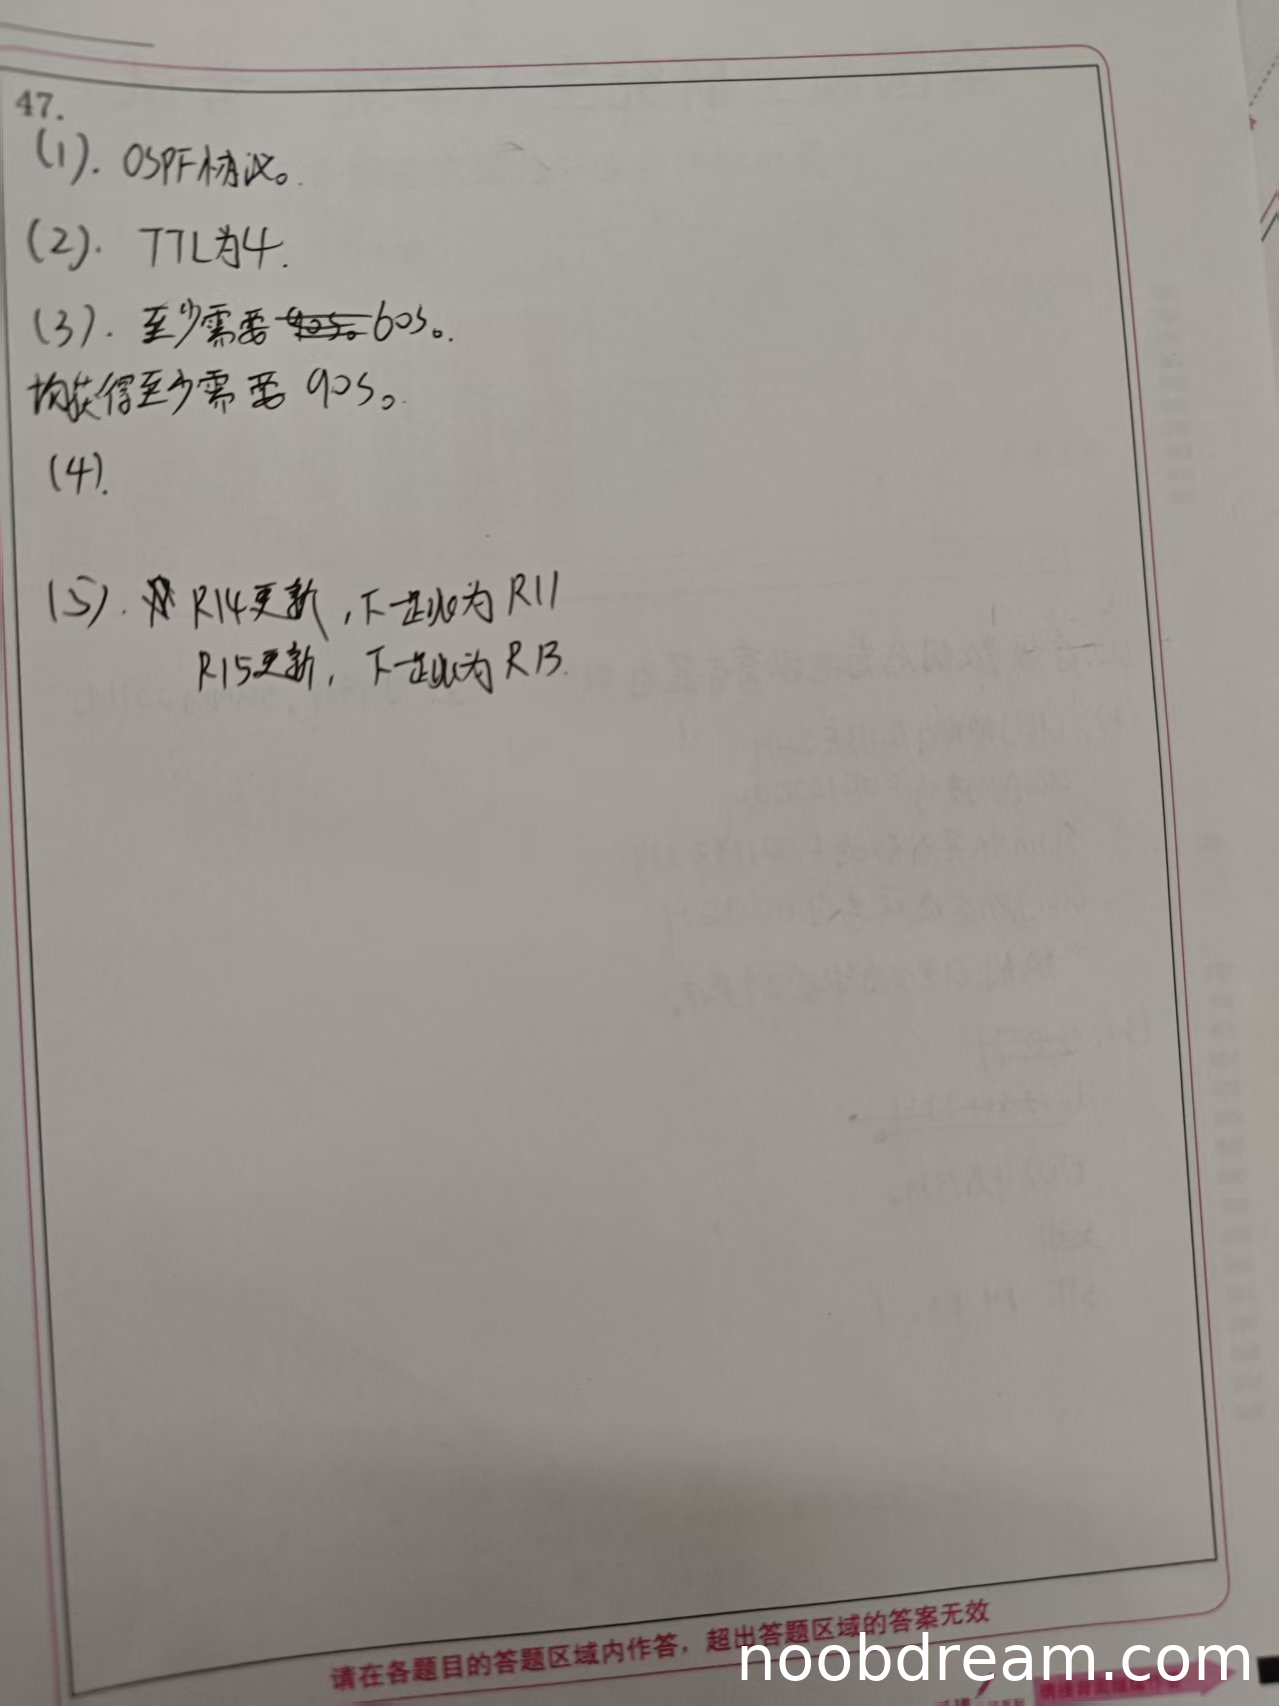 47.
(1). OSPF协议。
(2). TTL为4.
(3). 至少需要 60s。
均获得至少需要 90s。
(4).
(5). R14更新，下一跳为R11
R15更新，下一跳为R13.
请在各题目的答题区域内作答，超出答题区域的答案无效
noobdream.com